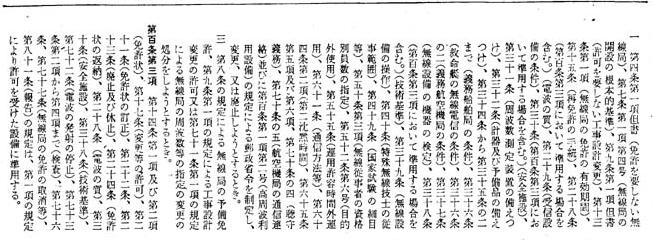 一　第四条第一項但書（免許を要しない無
線局）、第七条第一項第四号（無線局の
開設の根本的基準）、第九条第一項但書
（許可を要しない工事設計変更）、第十三
条第一項（無線局の免許の有効期間）、
第十五条（再免許の手続）、第二十八条
（第百条第三項において準用する場合を
含む。）（電波の質）、第二十九条（受信設
備の条件）、第三十条（第百条第三項にお
いて準用する場合を含む。）（安全施設）、
第三十一条（周波数測定装置の備えつ
け）、第三十二条（計器及び予備品の備え
つけ）、第三十四条から第三十五条の二
まで（義務船舶局の条件）、第三十六条
（救命艇の無線電信の条件）、第三十六条
の二（義務航空機局の条件）、第三十七条
（無線設備の機器の検定）、第三十八条
（第百条第三項において準用する場合を
含む。）（技術基準）、第三十九条（無線設
備の操作）、第四十条（特殊無線技士の従
事範囲）、第四十九条（国家試験の細目
等）、第五十条第三項（無線従事者の資格
別員数の指定）、第五十二条第六号（目的
外使用）、第五十五条（運用許容時間外運
用）、第六十一条（通信方法等）、第六十
四条第二項（第二沈黙時間）、第六十五条
第五項及び第六項、第七十条の四（聴守
義務）、第七十条の五（航空機局の通信連
絡）並びに第百条第一項第二号（高周波利
用設備）の規定による郵政省令を制定し、
変更し、又は廃止しようとするとき。
三　第八条の規定による無線局の予備免
許、第九条第一項の規定による工事設計
変更の許可又は第七十一条第一項の規定
による無線局の周波数等の指定の変更の
処分をしようとするとき。
第百条第三項　第十四条第一項及び第二項
（免許状）、第十七条（変更等の許可）、第二
十一条（免許状の訂正）、第二十二条、第二
十三条（廃止及び休止）、第二十四条（免許
状の返納）、第二十八条（電波の質）、第三
十条（安全施設）、第三十八条（技術基準）、
第七十二条（電波の発射の停止）、第七十三
条第二項から第四項まで（検査）、第七十六
条、第七十七条（無線局の免許の取消等）、
第八十一条（報告）の規定は、第一項の規定
により許可を受けた設備に準用する。